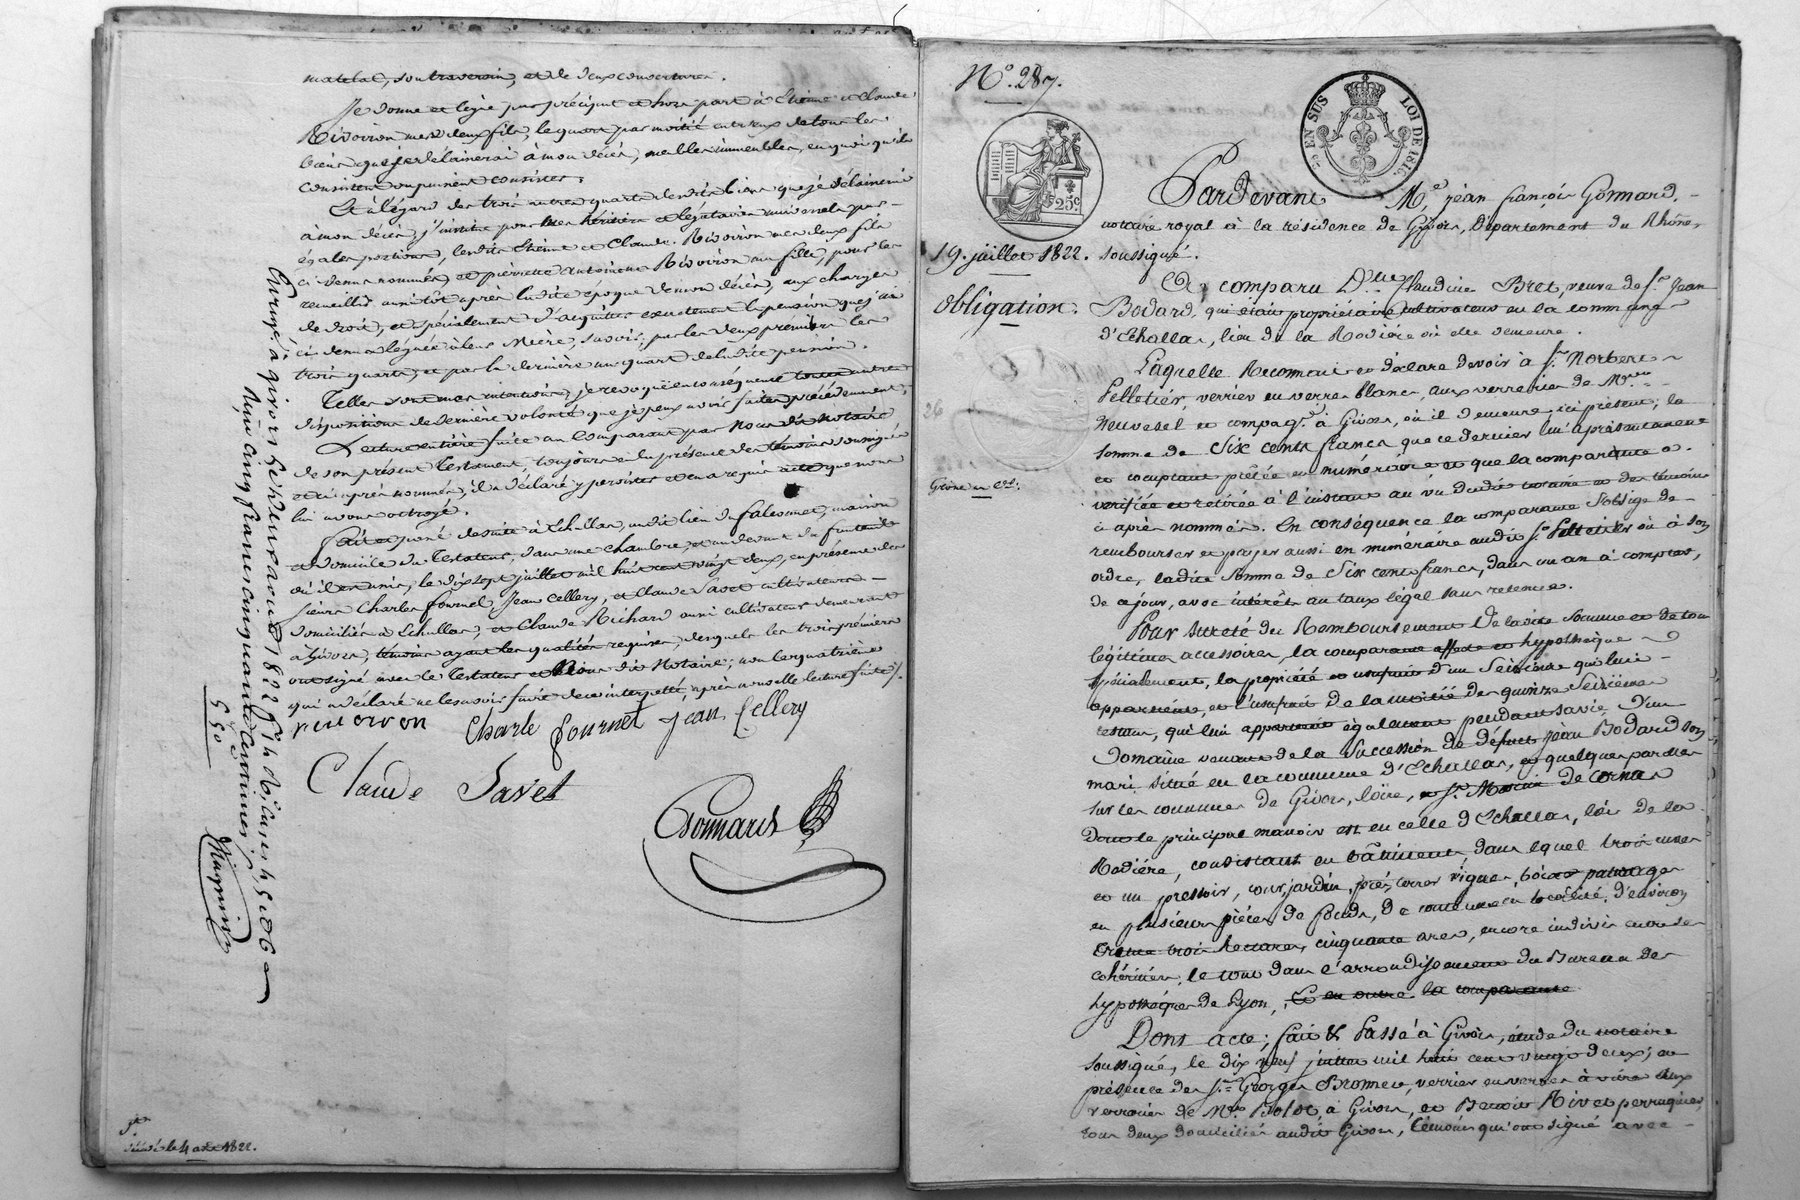 matelat, son traversin, et de deux couvertures.
Je donne et lègue par préciput et hors part à Etienne et Claude
Rivoiron mes deux fils, le quart par moitié entr'eux de tous les
biens que je délaisserai à mon décès, meubles immeubles, en quoi qu'ils
consistent ou puissent consister.
Et à l'égard des trois autres quarts desdits biens que je délaisserai
à mon décès, j'institue pour mes héritiers et légataires universels par
égales portions, lesdits Etienne et Claude Rivoiron mes deux fils
ci devant nommés, et pierrette antoinette Rivoiron ma fille, pour les
recueillir aussitôt après ladite époque de mon décès, aux charges
de droit, et spécialement d'acquitter exactement la pension que j'ai
ci devant léguée à leur Mère, savoir, par les deux premiers les
trois quarts, et par la dernière un quart de ladite pension.
Telles sont mes intentions, je revoque en conséquence toutes autres
dispositions de dernière volonté que je peux avoir faites précédemment,
Lecture entière faite au Comparant par Nous dit Notaire
de son présent Testament, toujours en la présence des témoins soussignés
et ci après nommés, il a déclaré y persister et en a requis acte que nous
lui avons octroyé.
Fait et passé de suite à Echallas, au dit lieu du, maison
et domicile du Testateur, dans une chambre,
où il est unie, le dix sept juillet mil huit cent vingt deux, en présence des
sieurs Charles fournel, Jean Cellery, et Claude Savet cultivateurs
domiciliés à Echallas, et Claude Richard aussi cultivateur demeurant
à Givors, témoins ayant les qualités requises, desquels les trois premiers
ont signé avec le Testateur et Nous dit Notaire; non le quatrième
qui a déclaré ne le savoir faire de ce interpellé, après nouvelle lecture faite
rivoiron Charle fournel jean Cellery
Claude Savet
Gonnard
Enregé à givors le deux aout 1822
Reçu cinq francs cinquante centimes
5 50
le 4 août 1822.
N.º 287.
EN SUS
LOI DE 1816
25 c
19. juillet 1822.
Obligation.
Pardevant M.e jean françois Gonnard,
notaire royal à la résidence de Givors, département du Rhône,
soussigné.
A comparu D.lle Claudine Bret, veuve de S.r Jean
Bodard, qui était propriétaire cultivateur en la commune
d'Echallas, lieu de la Rodière où elle demeure.
Laquelle Reconnait et déclare devoir à S.r Norbert
Pelletier, verrier en verre blanc, aux verreries de M.rs
Neuvesel et compag.e à Givors, où il demeure, ici présent; la
somme de Six cents francs que ce dernier lui a présentement
et comptant prêtée en numéraire et que la comparante a
vérifiée et retirée à l'instant au vu dudit notaire et des témoins
ci après nommés. En conséquence la comparante s'oblige de
rembourser et payer aussi en numéraire audit S.r Pelletier ou à son
ordre, ladite somme de Six cents francs, dans un an à compter
de ce jour, avec intérêts au taux légal sans retenue.
Pour sureté du Remboursement de ladite somme et de tous
légitimes accessoires, la comparante affecte et hypothèque
spécialement, la propriété et usufruit d'un Seizième qui lui
appartient, et l'usufruit de la moitié des quinze Seizièmes
restans, qui lui appartient également pendant sa vie, d'un
Domaine venant de la succession de défunt jean Bodard son
mari situé en la commune d'Echallas, et quelques parcelles
sur les communes de Givors, loire, et S.t Martin de Cornas
Dont le principal manoir est en celle d'Echallas, lieu de la
Rodière, consistant en bâtimens, dans lequel trois cuves
et un pressoir, cour, jardin, prés, terres vignes, bois et paturages
en plusieurs pièces de fonds, de contenue en totalité, d'environ
trente trois hectares, cinquante ares, encore indivis entre les
cohéritiers, le tout dans l'arrondissement du Bureau des
hypothèques de Lyon, Et en outre la comparante
Dont acte; fait & Passé à Givors, étude du notaire
soussigné, le dix neuf juillet mil huit cent vingt deux; en
présence des S.rs Georges, verrier en verres à vitre aux
verreries de M.rs Bolot, à Givors, et Benoit Rivet perruquier,
tous deux domiciliés audit Givors, témoins qui ont signé avec